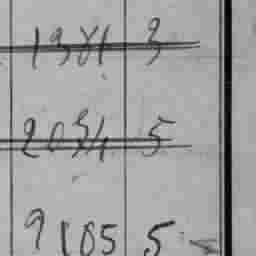 1381 3
2051 5
9105 5